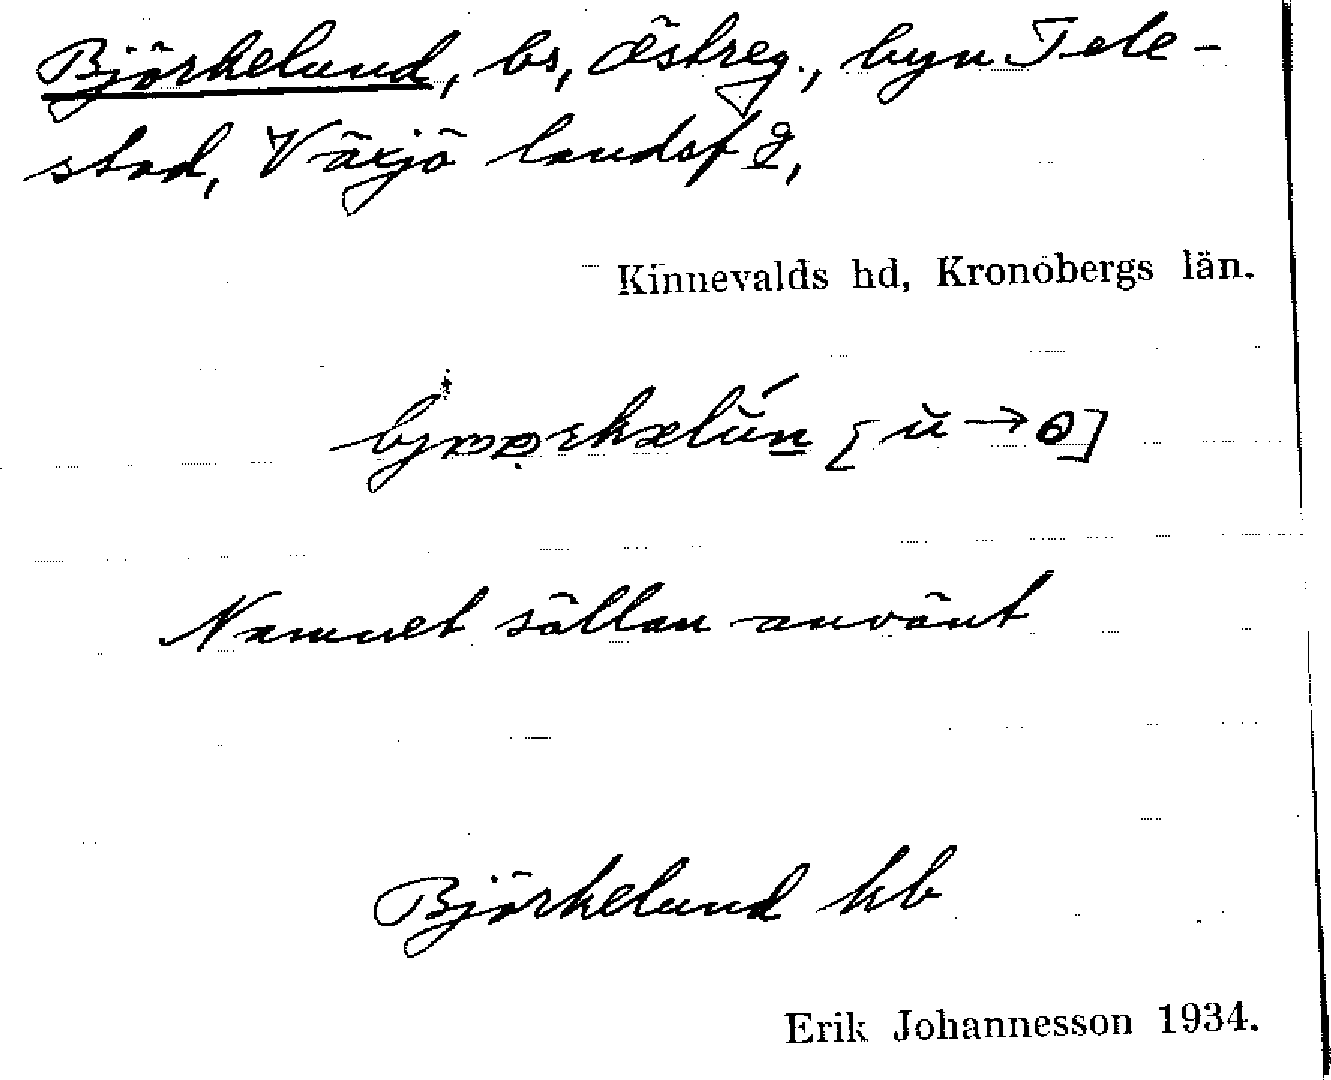 Björkelund, bs, östreg., byn Tele-
stad, Växjö landsf g,
Kinnevalds hd, Kronobergs län.
[ŭ→
Namnet sällan använt
Björkelund kb
Erik Johannesson 1934.